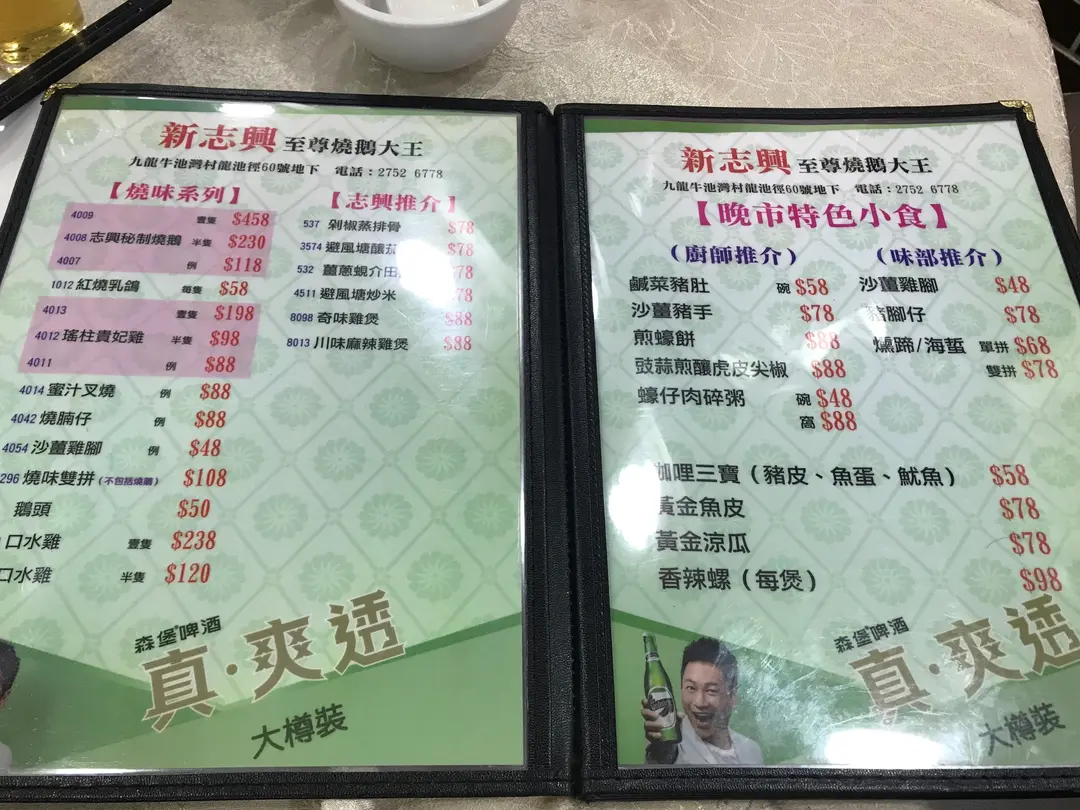 新志興 至尊燒鵝大王
九龍牛池灣村龍池徑60號地下 電話：2752 6778
【燒味系列】
4009 壹隻 $458
4008 志興秘制燒鵝 半隻 $230
4007 例 $118
1012 紅燒乳鴿 每隻 $58
4013 壹隻 $198
4012 瑤柱貴妃雞 半隻 $98
4011 例 $88
4014 蜜汁叉燒 例 $88
4042 燒腩仔 例 $88
4054 沙薑雞腳 例 $48
296 燒味雙拼（不包括燒鵝） $108
鵝頭 $50
口水雞 壹隻 $238
口水雞 半隻 $120
【志興推介】
537 剁椒蒸排骨 $78
3574 避風塘釀茄 $78
532 薑蔥蜆介田 $78
4511 避風塘炒米 $78
8098 奇味雞煲 $88
8013 川味麻辣雞煲 $88
森堡啤酒
真·爽透
大樽裝
新志興 至尊燒鵝大王
九龍牛池灣村龍池徑60號地下 電話：2752 6778
【晚市特色小食】
（廚師推介）
鹹菜豬肚 碗 $58
沙薑豬手 $78
煎蠔餅 $88
豉蒜煎釀虎皮尖椒 $88
蠔仔肉碎粥 碗 $48
窩 $88
（味部推介）
沙薑雞腳 $48
豬腳仔 $78
燻蹄/海蜇 單拼 $68
雙拼 $78
咖哩三寶（豬皮、魚蛋、魷魚） $58
黃金魚皮 $78
黃金涼瓜 $78
香辣螺（每煲） $98
森堡啤酒
真·爽透
大樽裝